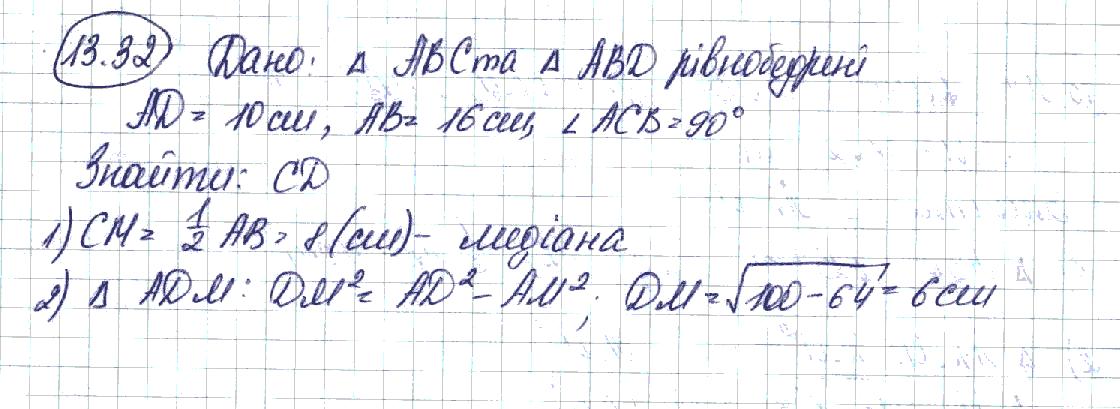 13.32 Дано: Δ ABC та Δ ABD рівнобедрені
AD = 10 см, AB = 16 см, ∠ ACB = 90°
Знайти: CD
1) CM = 1/2 AB = 8 (см) - медіана
2) Δ ADM: DM² = AD² - AM²; DM = √100 - 64 = 6 см